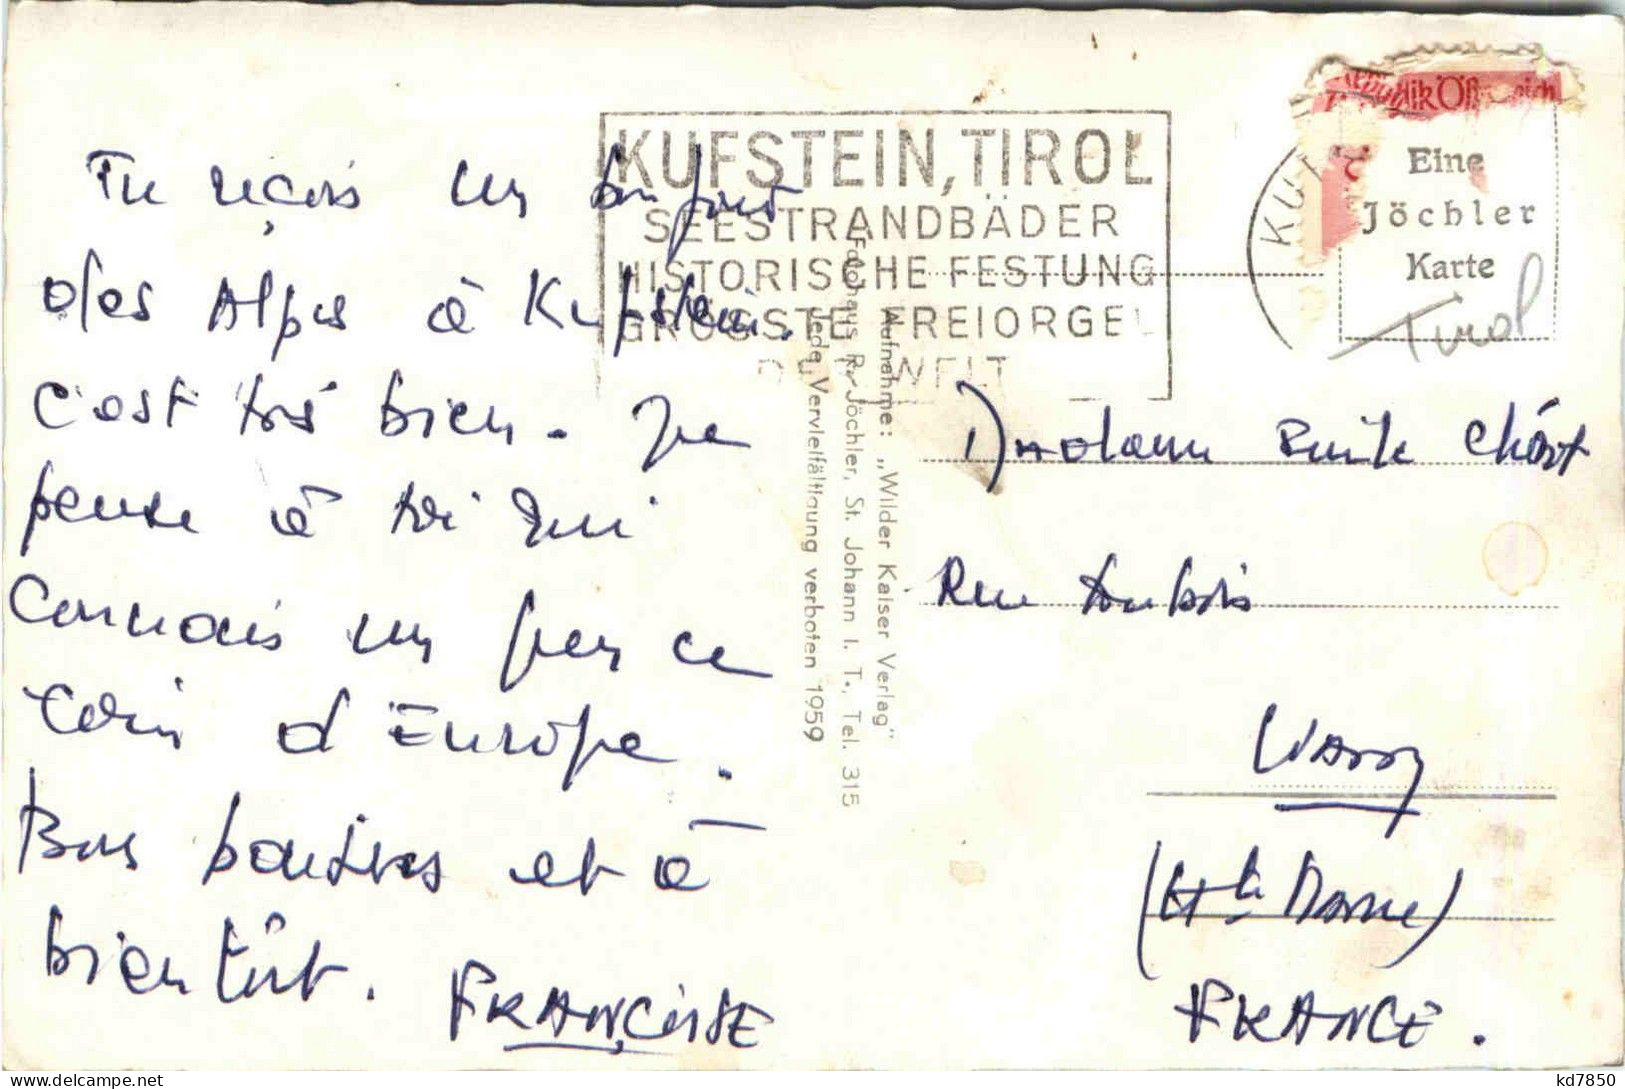 Tu reçois un bonjour
des Alpes à Kufstein.
C'est très bien. Je
pense à toi qui
connais un peu ce
coin d'Europe.
Bons baisers et à
bientôt. FRANÇOISE
KUFSTEIN, TIROL
SEESTRANDBÄDER
HISTORISCHE FESTUNG
GRÖSSTE FREIORGEL
DER WELT
KUF
Republik Österreich
Eine
Jöchler
Karte
Tirol
Aufnahme: „Wilder Kaiser Verlag"
Fotohaus R. Jöchler, St. Johann i. T., Tel. 315
Jede Vervielfältigung verboten 1959
Madame
Rue
Wassy
(Hte Marne)
FRANCE.
kd7850